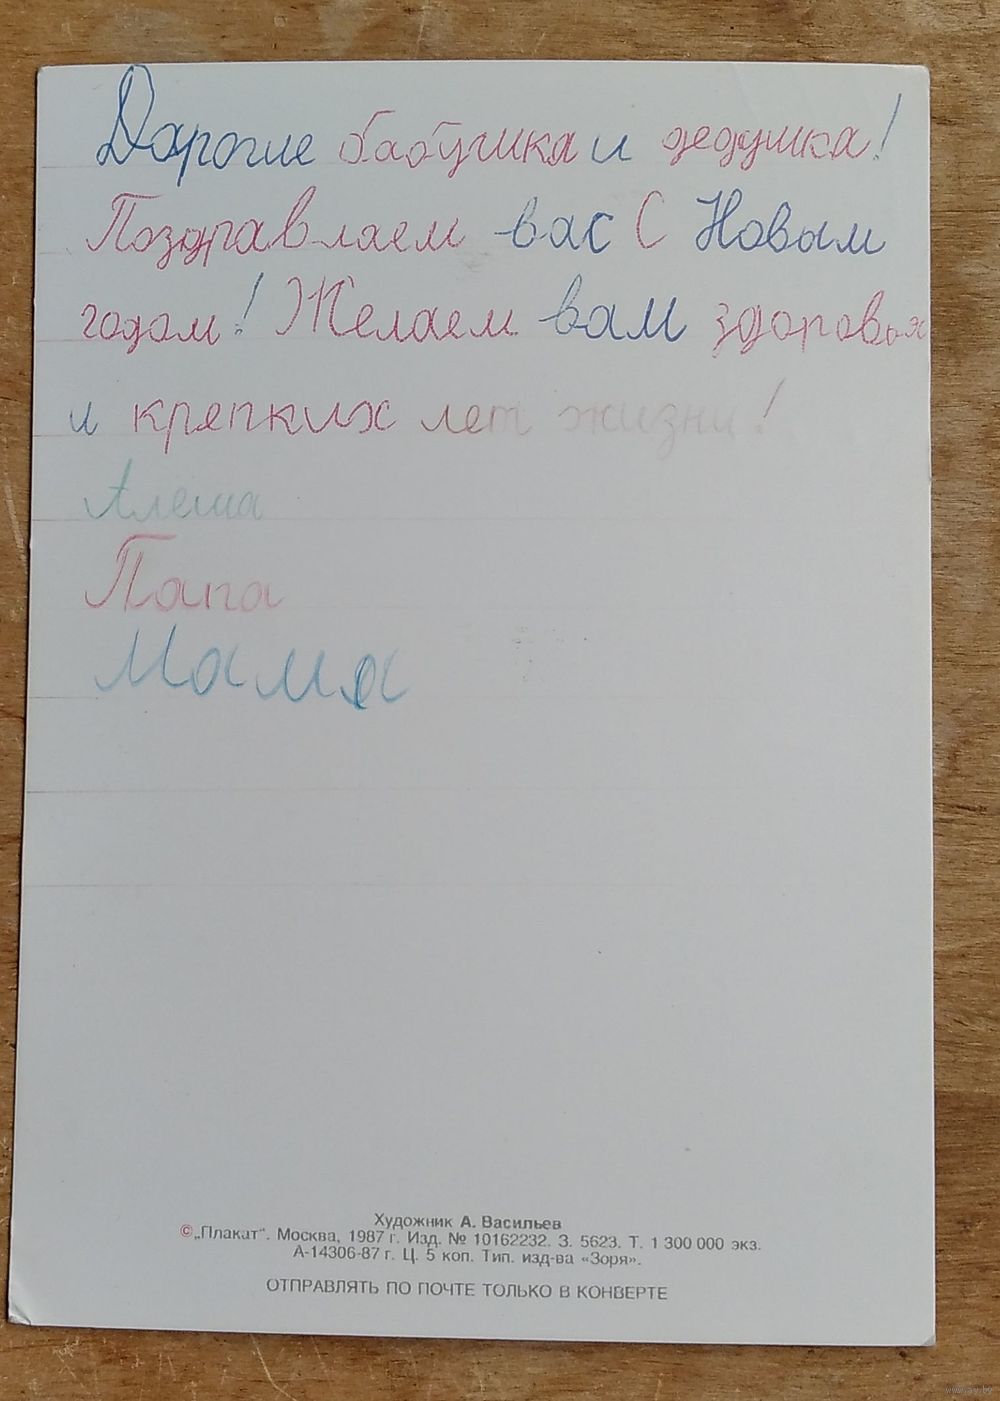 Дарогие бабушка и дедушка!
Поздравлаем вас С Новым
годом! Желаем вам здоровья
и крепких лет жизни!
Алеша
Папа
Мама
Художник А. Васильев
© „Плакат“. Москва, 1987 г. Изд. № 10162232. З. 5623. Т. 1 300 000 экз.
А-14306-87 г. Ц. 5 коп. Тип. изд-ва «Зоря».
ОТПРАВЛЯТЬ ПО ПОЧТЕ ТОЛЬКО В КОНВЕРТЕ
www.ay.by